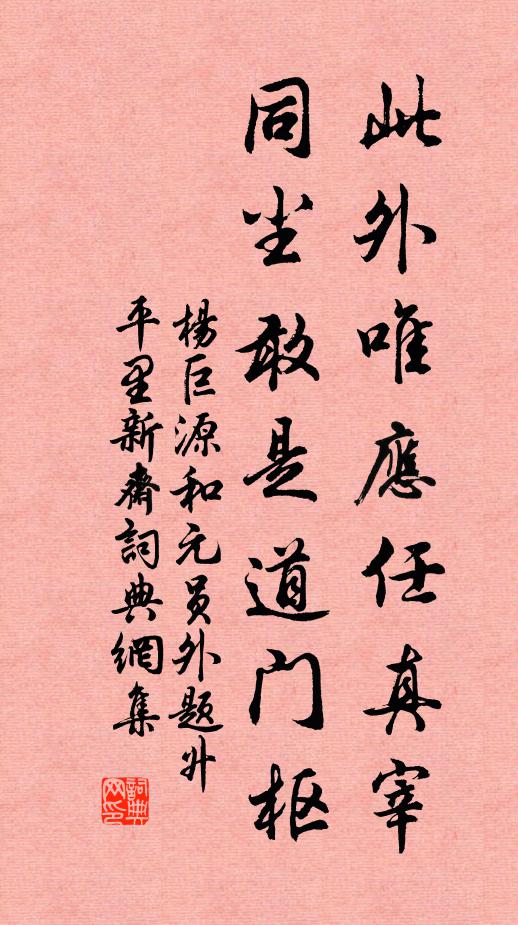 此外唯應任真宰
同尘敢是道门枢
楊巨源和元员外题升
平里新齋詞典網集
詞典網印